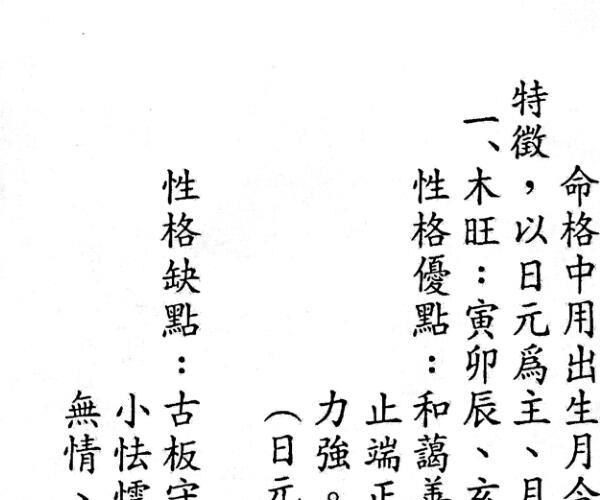 命格中用出生月令
特徵，以日元爲主、月
一、木旺：寅卯辰、亥
性格優點：和藹善
止端正
力強。
（日元
性格缺點：古板守
小怯懦
無情、